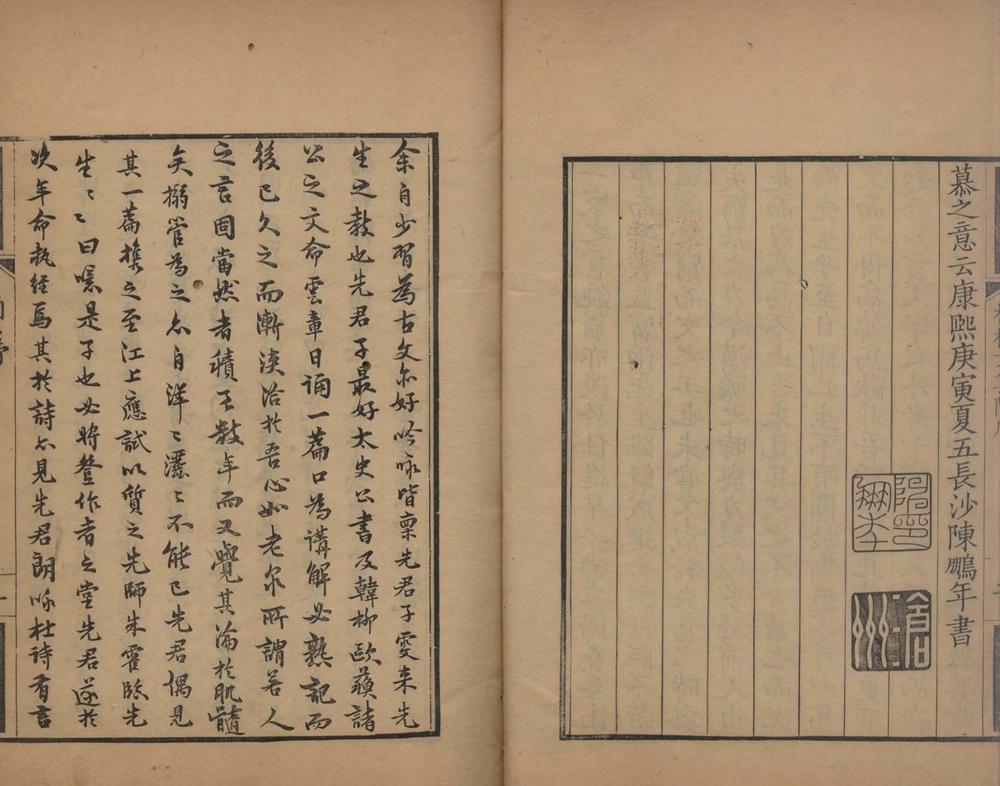 慕之意云康熙庚寅夏五長沙陳鵬年書
滄州
余自少習為古文尔好吟咏皆稟先君子雯来先
生之教也先君子最好太史公書及韓柳歐蘓諸
公之文命雲章日誦一篇口為講解必熟記而
後已久之而漸浹洽於吾心如老泉所謂若人
之言固當然者積王数年而又覺其淪於肌髓
矣搦管為之亦自洋〻灑〻不能已先君偶見
其一篇攜之至江上應試以質之先師朱霍臨先
生〻〻曰噫是子也必將登作者之堂先君遂於
次年命執經焉其於詩亦見先君朗咏杜詩有言